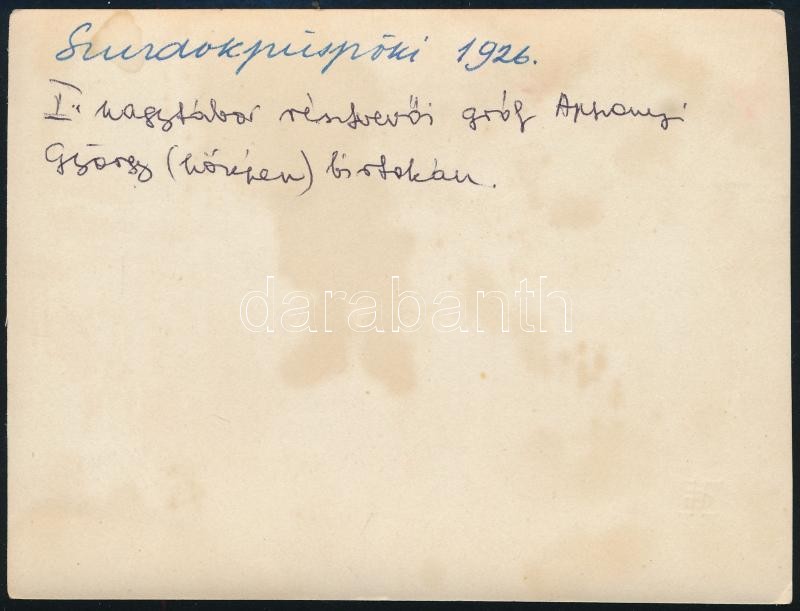 Szurdokpüspöki 1926.
I. nagytábor résztvevői gróf Apponyi
György (középen) birtokán.
darabanth